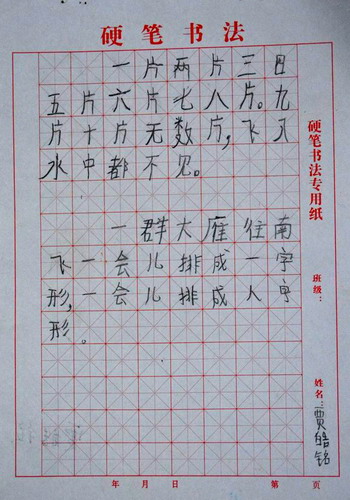 硬笔书法
一片两片三日
五片六片七八片。九
片十片无数片,飞入
水中都不见。
一群大雁往南
飞一会儿排成一字
形,一会儿排成人字
形。
硬笔书法专用纸
班级:
姓名:贾皓铭
年 月 日 第 页